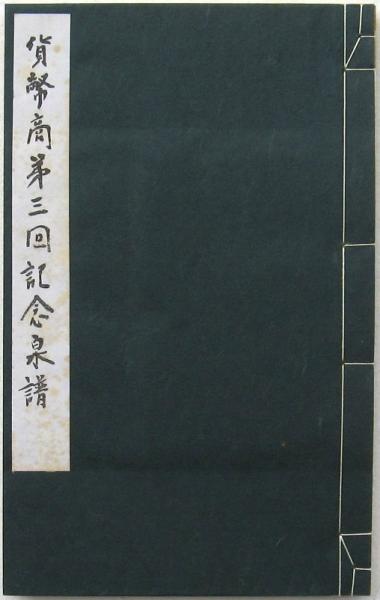 貨幣商第三回記念泉譜